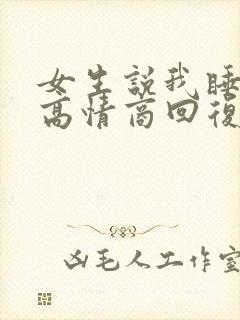 女生説我睡
高情商回復
凶毛人工作室